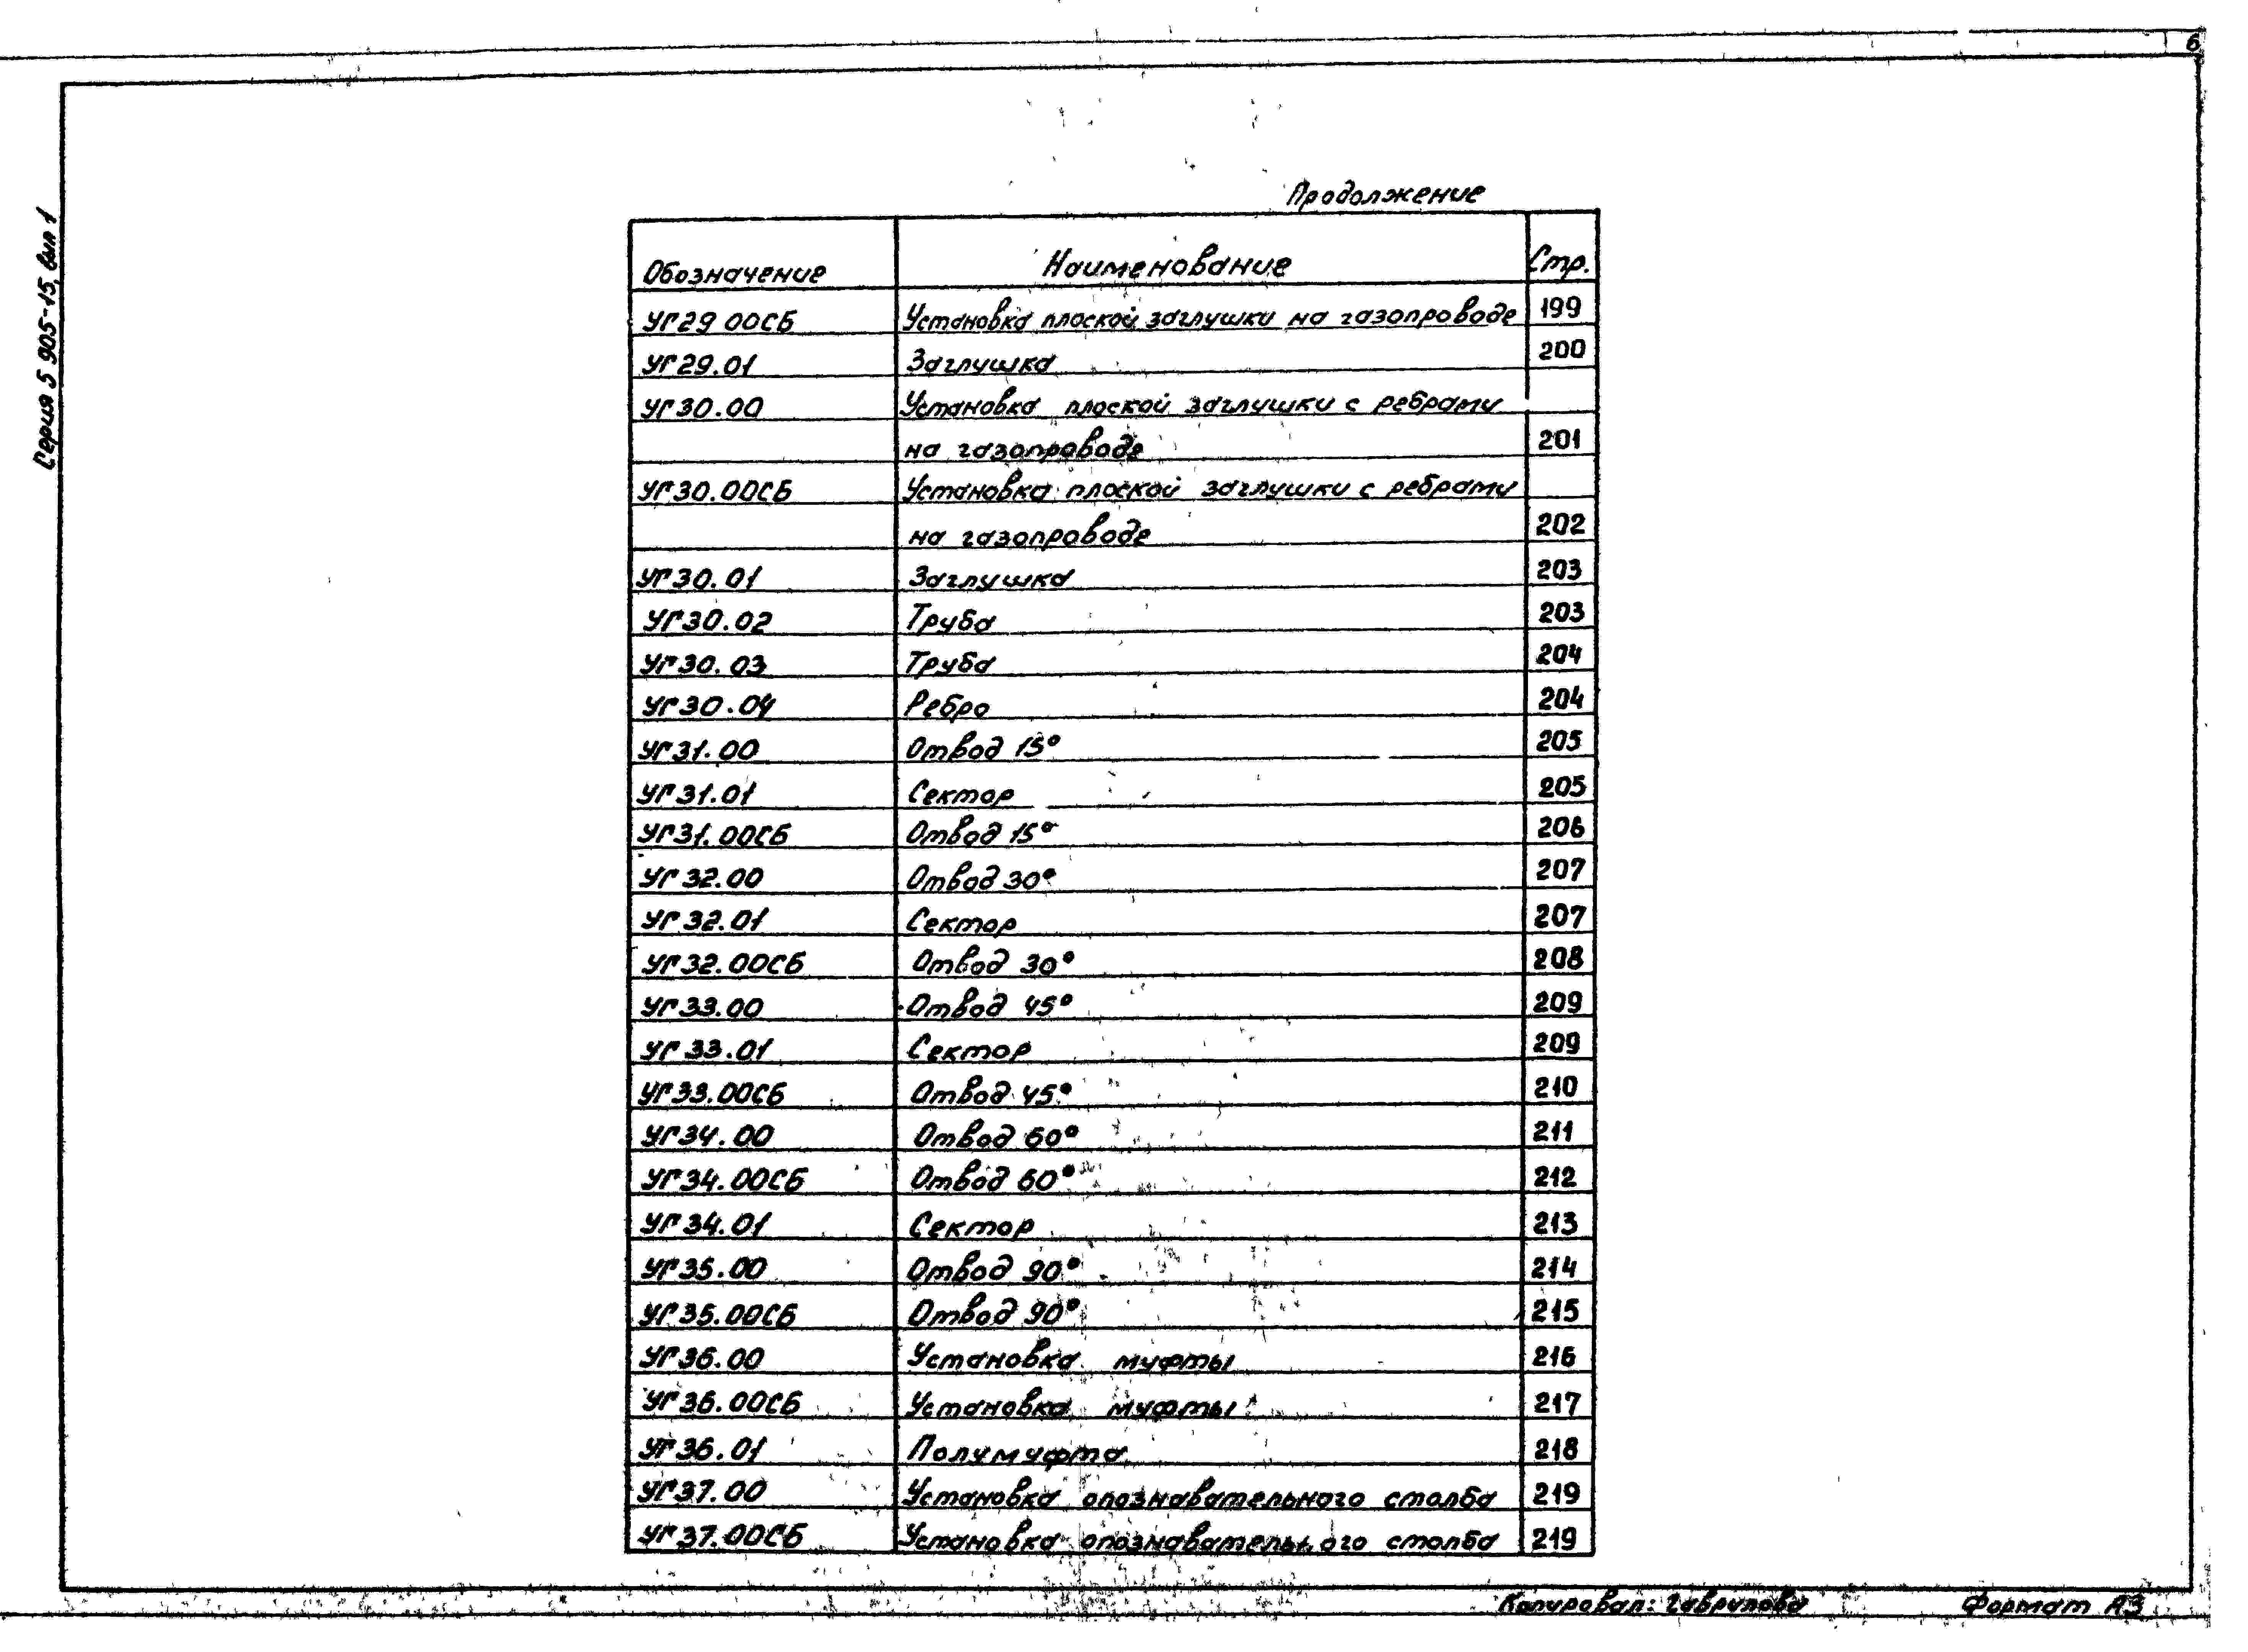 6
Серия 5 905-15, вып 1
Продолжение
Обозначение Наименование Стр.
УГ29 00СБ Установка плоской заглушки на газопроводе 199
УГ29.01 Заглушка 200
УГ30.00 Установка плоской заглушки с ребрами
на газопроводе 201
УГ30.00СБ Установка плоской заглушки с ребрами
на газопроводе 202
УГ30.01 Заглушка 203
УГ30.02 Труба 203
УГ30.03 Труба 204
УГ30.04 Ребро 204
УГ31.00 Отвод 15° 205
УГ31.01 Сектор 205
УГ31.00СБ Отвод 15° 206
УГ32.00 Отвод 30° 207
УГ32.01 Сектор 207
УГ32.00СБ Отвод 30° 208
УГ33.00 Отвод 45° 209
УГ33.01 Сектор 209
УГ33.00СБ Отвод 45° 210
УГ34.00 Отвод 60° 211
УГ34.00СБ Отвод 60° 212
УГ34.01 Сектор 213
УГ35.00 Отвод 90° 214
УГ35.00СБ Отвод 90° 215
УГ36.00 Установка муфты 216
УГ36.00СБ Установка муфты 217
УГ36.01 Полумуфта 218
УГ37.00 Установка опознавательного столба 219
УГ37.00СБ Установка опознавательного столба 219
Копировал: Гаврилова Формат А3